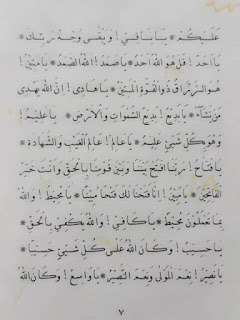 عَلَيْكُمْ * يَا بَاقِي! وَيَبْقَى وَجْهُ رَبِّكَ *
يَا اَحَدُ! قُلْ هُوَ اللهُ اَحَدٌ * يَا صَمَدُ! اَللهُ الصَّمَدُ * يَا مَتِينُ!
هُوَ الرَّزَّاقُ ذُو الْقُوَّةِ الْمَتِينُ * يَا هَادِى! اِنَّ اللهَ يَهْدِى
مَنْ يَشَآءُ * يَا بَدِيعُ! بَدِيعُ السَّمٰوَاتِ وَالْاَرْضِ * يَا عَلِيمُ!
وَهُوَ بِكُلِّ شَىْءٍ عَلِيمٌ * يَا عَالِمُ! عَالِمُ الْغَيْبِ وَالشَّهَادَةِ *
يَا فَتَّاحُ! رَبَّنَا افْتَحْ بَيْنَنَا وَبَيْنَ قَوْمِنَا بِالْحَقِّ وَاَنْتَ خَيْرُ
الْفَاتِحِينَ * يَا مُبِينُ! اِنَّا فَتَحْنَا لَكَ فَتْحًا مُبِينًا * يَا مُحِيطُ! وَاللهُ
بِمَا تَعْمَلُونَ مُحِيطٌ * يَا كَافِي! وَاللهُ يَكْفِينِى بِالْحَقِّ *
يَا حَسِيبُ! وَكَانَ اللهُ عَلٰى كُلِّ شَىْءٍ حَسِيبًا *
يَا نَصِيرُ! نِعْمَ الْمَوْلٰى وَنِعْمَ النَّصِيرُ * يَا وَاسِعُ! وَكَانَ اللهُ
٧